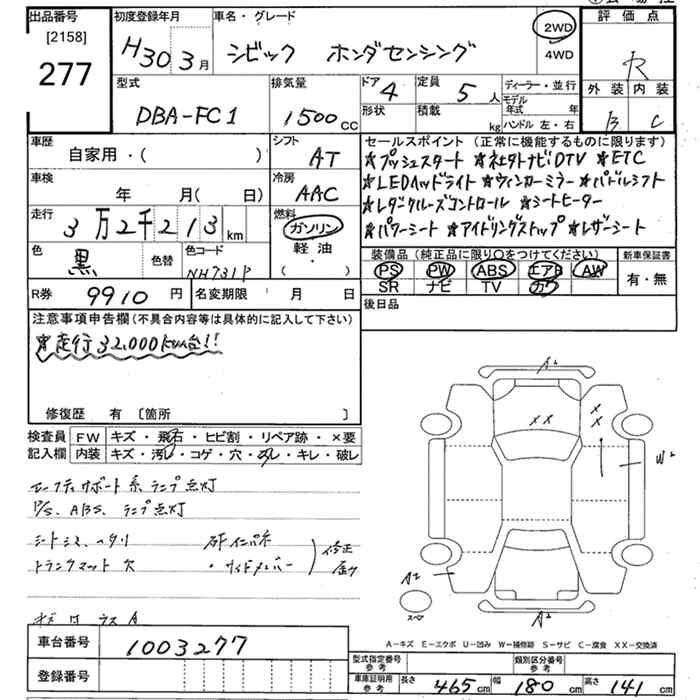 出品番号 初度登録年月 車名・グレード 評価点
[2158]
277 H30 3月 シビック ホンダセンシング 2WD 4WD R
型式 排気量 ドア 4 定員 5人 ディーラー・並行 外装 内装
DBA-FC1 1500cc 形状 積載 kg モデル年式 年 B C
ハンドル 左・右
車歴 シフト セールスポイント(正常に機能するものに限ります)
自家用・( ) AT ★プッシュスタート ★社外ナビDTV ★ETC
車検 冷房 ★LEDヘッドライト ★ウィンカーミラー ★パドルシフト
年 月(日) AAC ★レダクルーズコントロール ★シートヒーター
走行 燃料 ★パワーシート ★アイドリングストップ ★レザーシート
3万2千213km ガソリン
軽油・( )
色 黒 色替 色コード NH731P 装備品(純正品に限り○をつけてください) 新車保証書
PS PW ABS エアB AW 有・無
SR ナビ TV カワ
R券 9910円 名変期限 月 日 後日品
注意事項申告欄(不具合内容等は具体的に記入して下さい)
★走行32,000km台!!
修復歴 有 〔箇所 〕
検査員 FW キズ・飛石・ヒビ割・リペア跡・×要
記入欄 内装 キズ・汚れ・コゲ・穴・スレ・キレ・破レ
セーフティサポート系ランプ点灯
P/S、ABS、ランプ点灯
シートシミ、ヘタリ
トランクマット欠
・サイドメンバー
修正
A2
XX
X
X
W2
A2
スペア
A2
A-キズ E-エクボ U-凹み W-補修跡 S-サビ C-腐食 XX-交換済
車台番号 1003277
登録番号
型式指定番号 参考 類別区分番号 参考
車庫証明用 参考 長さ 465cm 幅 180cm 高さ 141cm